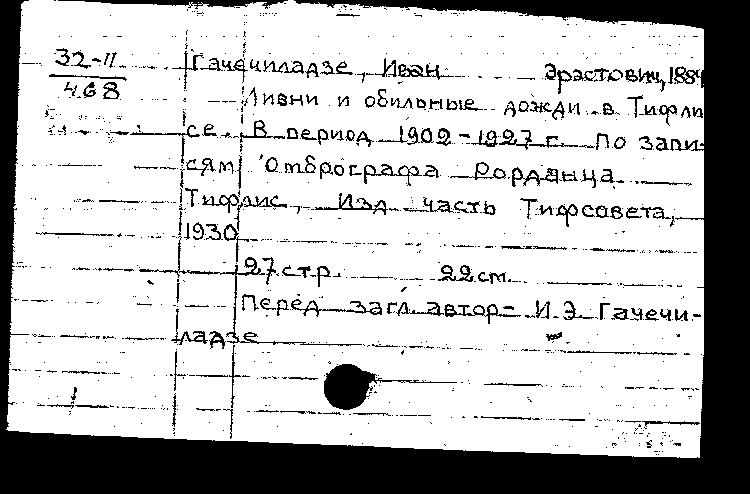 32-II
468
Гачечиладзе, Иван Эрастович, 1884
Ливни и обильные дожди в Тифли
се. В период 1902-1927 г. По запи-
сям Омбрографа Рорданца
Тифлис, Изд. часть Тифсовета,
1930
27 стр. 22 см.
Перед загл. автор- И.Э. Гачечи-
ладзе